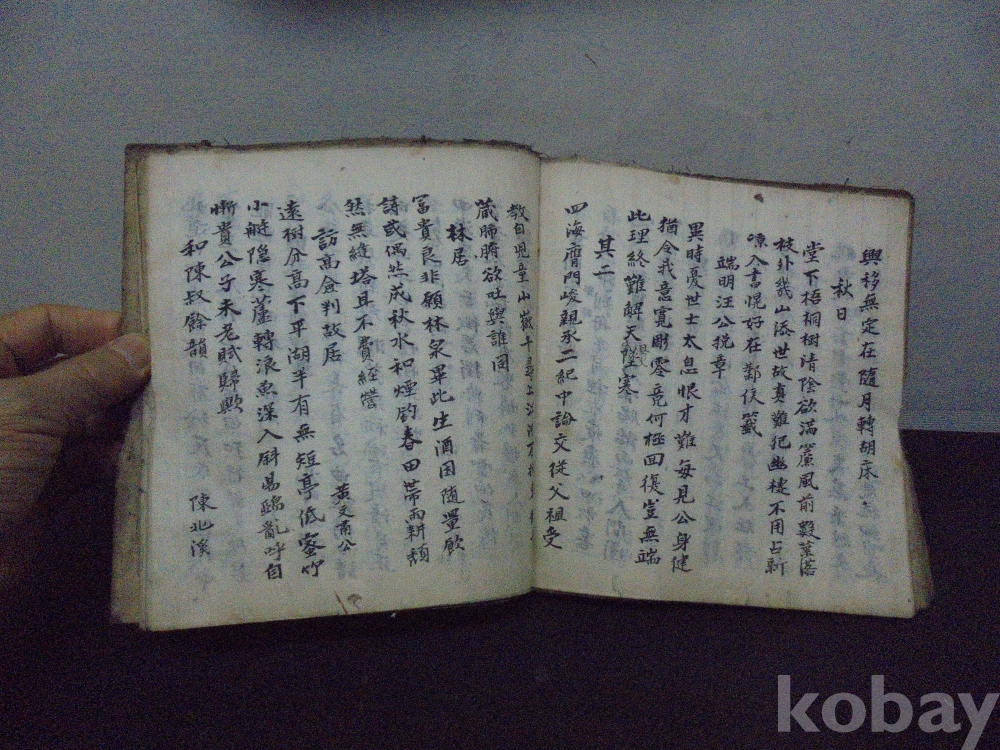 興移無定在隨月轉胡床
秋日
堂下梧桐樹清陰欲滿簾風前數葉落
枝外幾山添世故真難犯幽棲不用占新
凉入書幌好在鄴侯籤
端明汪公挽章
異時憂世士太息恨才難每見公身健
猶令我意寬彫零竟何極回復豈無端
此理終難解天墜塞
其二
四海膺門峻親承二紀中論文從父祖受
教自兒童山嶽千尋上
藏肺腑欲吐與誰同
林居
富貴良非願林泉畢此生酒因隨量飲
詩或偶然成秋水和煙釣春田帶雨耕頹
然無縫塔且不費經營
訪高僉判故居 黃文甫公
遠樹分高下平湖半有無短亭低蜜竹
小艇隱寒蘆轉浪魚深入斜昜鷗亂呼自
慚貴公子未老賦歸歟
和陳叔餘韻 陳北溪
kobay